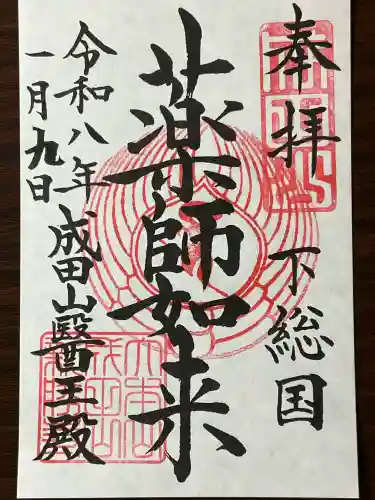 奉拝 下総国
薬師如来
令和八年 成田山醫王殿
一月九日